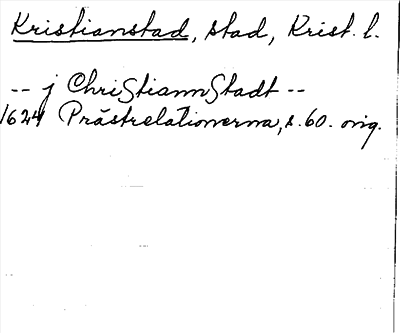 Kristianstad, stad, Krist. l.
-- j ChriStiannStadt --
1624 Prästrelationerna, s. 60. orig.